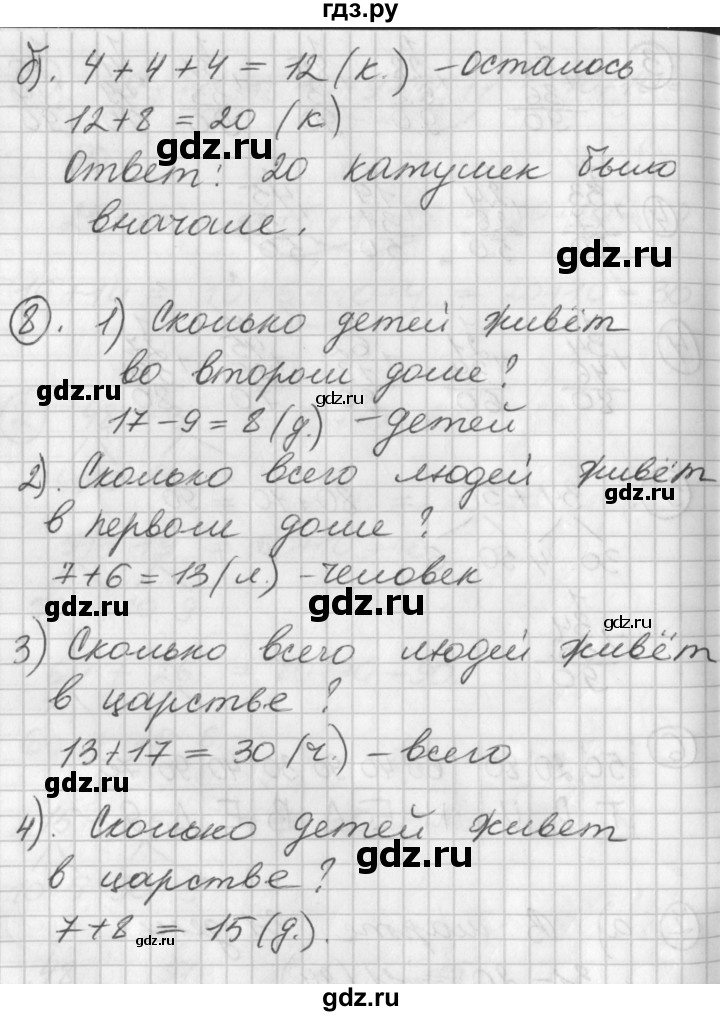 гдз.ру
б). 4 + 4 + 4 = 12 (к.) - осталось
12 + 8 = 20 (к)
gdz.ru
Ответ: 20 катушек было
вначале.
gdz.ru
8. 1) Сколько детей живёт
во втором доме?
gdz.ru
gdz.ru
17 - 9 = 8 (д.) - детей
2). Сколько всего людей живёт
gdz.ru
в первом доме?
7 + 6 = 13 (л.) - человек
gdz.ru
gdz.ru
gdz.ru
3) Сколько всего людей живёт
в царстве?
13 + 17 = 30 (ч.) - всего
gdz.ru
4). Сколько детей живет
gdz.ru
в царстве?
7 + 8 = 15 (д.).
gdz.ru
gdz.ru